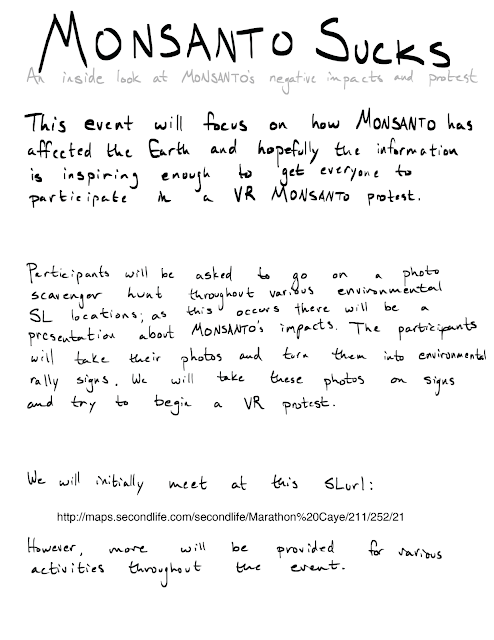 MONSANTO SUCKS
An inside look at MONSANTO's negative impacts and protest
This event will focus on how MONSANTO has
affected the Earth and hopefully the information
is inspiring enough to get everyone to
participate in a VR MONSANTO protest.
Participants will be asked to go on a photo
scavenger hunt throughout various environmental
SL locations; as this occurs there will be a
presentation about MONSANTO's impacts. The participants
will take their photos and turn them into environmental
rally signs. We will take these photos on signs
and try to begin a VR protest.
We will initially meet at this SLurl:
http://maps.secondlife.com/secondlife/Marathon%20Caye/211/252/21
However, more will be provided for various
activities throughout the event.